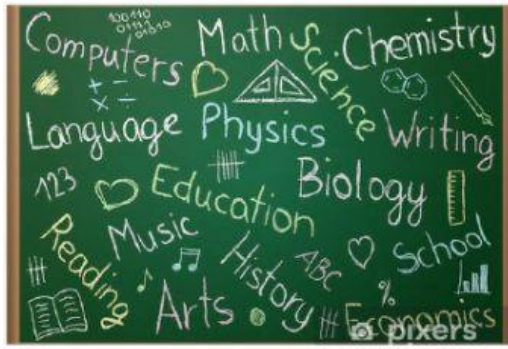 100110
01111
01010
Computers
Math
Science
Chemistry
+ -
× ÷
Language
Physics
Writing
123
Education
Biology
Reading
Music
History
ABC
School
Arts
%
Economics
pixers